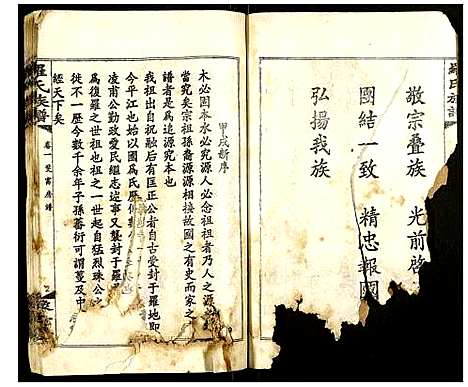 羅氏族譜
敬宗叠族 光前啓
國結一致 精忠報國
弘揚我族
甲戌新序
木必固本水必究源人必念祖祖者乃人之源
譜者是爲追源究本也
當究矣宗祖孫裔源源相接故國之有史而家之
我祖出之於后有匡正公者自古受封于羅地即
今平江也始以國爲氏歷
凌甫公勤政愛民繼志述事又龔封于羅
爲復羅之世祖也祖之一世起自猛烈珠公
徙不一歷今數千余年子孫蕃衍可謂蔓及中
經天下矣
羅氏族譜
卷一